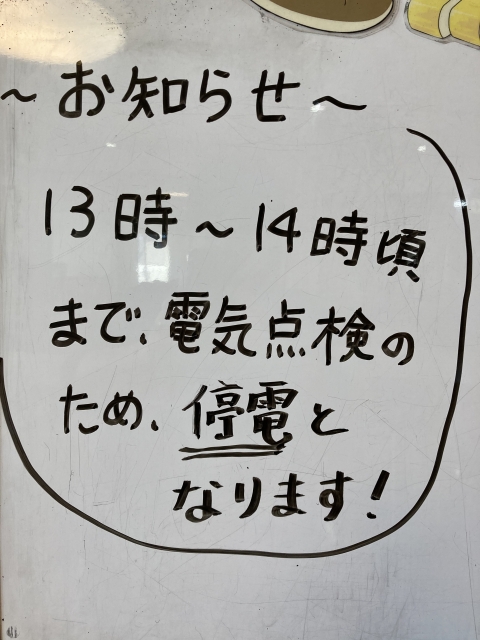 ～お知らせ～
13時～14時頃
まで、電気点検の
ため、停電と
なります!